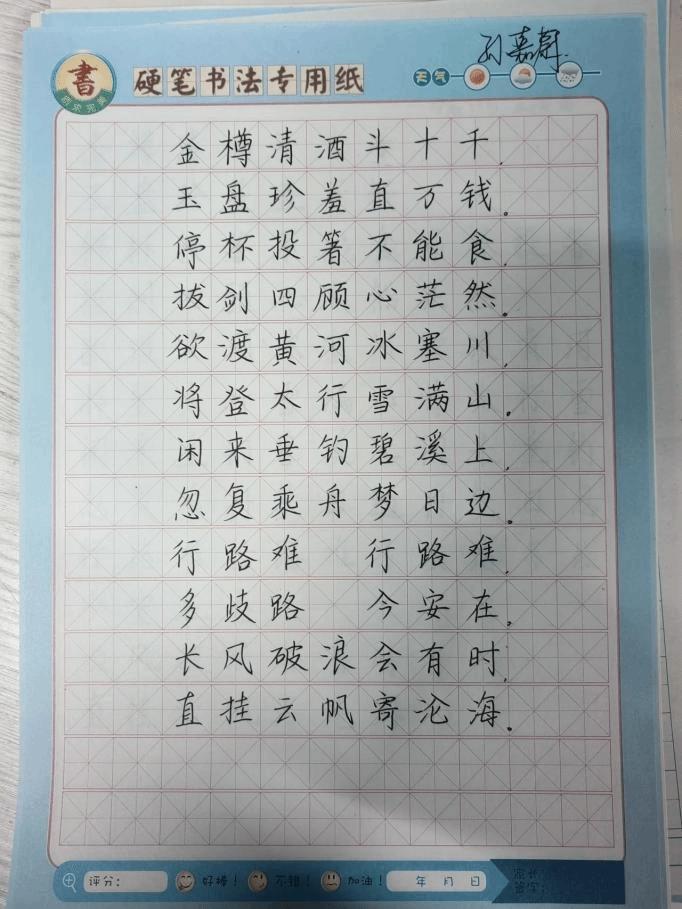 孙嘉蔚
書
硬笔书法专用纸
天气
金樽清酒斗十千,
玉盘珍羞直万钱。
停杯投箸不能食,
拔剑四顾心茫然。
欲渡黄河冰塞川,
将登太行雪满山。
闲来垂钓碧溪上,
忽复乘舟梦日边。
行路难 行路难,
多歧路 今安在。
长风破浪会有时,
直挂云帆寄沦海。
评分: 好棒! 不错! 加油! 年 月 日